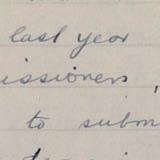 last year
issioners,
to subm